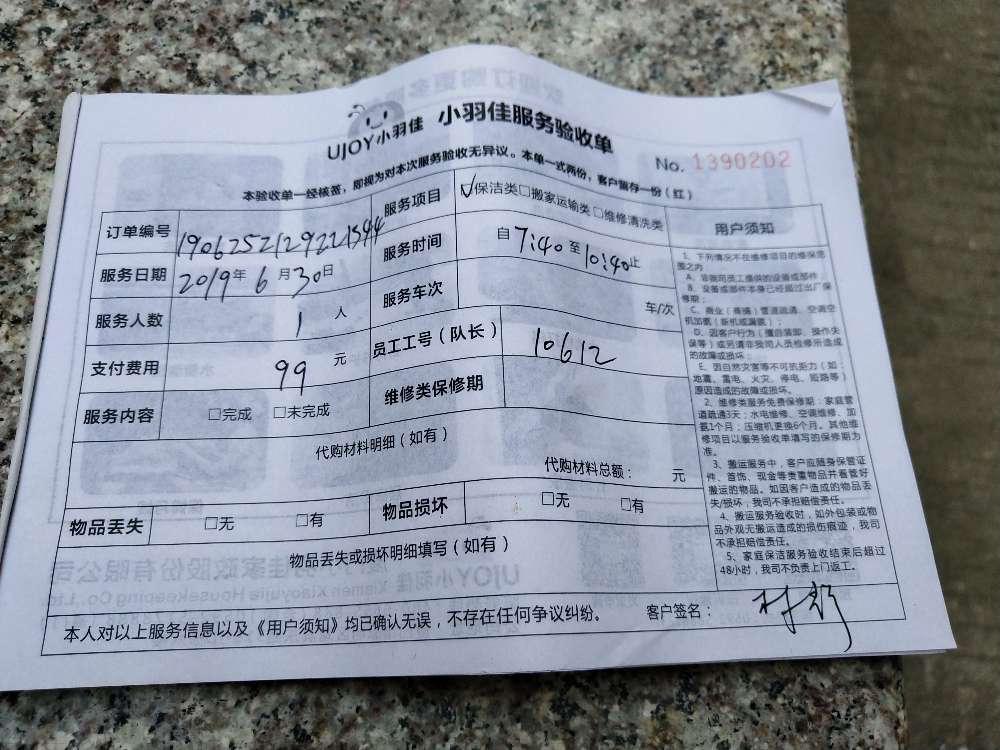 UJOY小羽佳 小羽佳服务验收单
No. 1390202
本验收单一经核签，即视为对本次服务验收无异议。本单一式两份，客户留存一份（红）
订单编号 1906252129221544
服务项目 ☑保洁类□搬家运输类□维修清洗类
服务日期 2019年6月30日
服务时间 自7:40至10:40止
服务人数 1 人
服务车次 车/次
支付费用 99 元
员工工号（队长） 10612
服务内容 □完成 □未完成
维修类保修期
代购材料明细（如有）
代购材料总额： 元
物品丢失 □无 □有
物品损坏 □无 □有
物品丢失或损坏明细填写（如有）
本人对以上服务信息以及《用户须知》均已确认无误，不存在任何争议纠纷。
客户签名：
用户须知
1、下列情况不在维修项目的维保范
围之内
A、非我司员工提供的设备或部件；
B、设备或部件本身已经超过出厂保
修期；
C、商业（商铺）管道疏通、空调空
机加氨（新机或漏氨）；
D、因客户行为（擅自装卸、操作失
误等）或另请非我司人员检修所造成
的故障或损坏；
E、因自然灾害等不可抗力（如：
地震、雷电、火灾、停电、短路等）
原因造成的故障或损坏。
2、维修类服务免费保修期：家庭管
道疏通3天；水电维修、空调维修、加
氨1个月；压缩机更换6个月。其他维
修项目以服务验收单填写的保修期为
准。
3、搬运服务中，客户应随身保管证
件、首饰、现金等贵重物品并看管好
搬运的物品。如因客户造成的物品丢
失/损坏，我司不承担赔偿责任。
4、搬运服务验收时，如外包装或物
品外观无搬运造成的损伤痕迹，我司
不承担赔偿责任。
5、家庭保洁服务验收结束后超过
48小时，我司不负责上门返工。